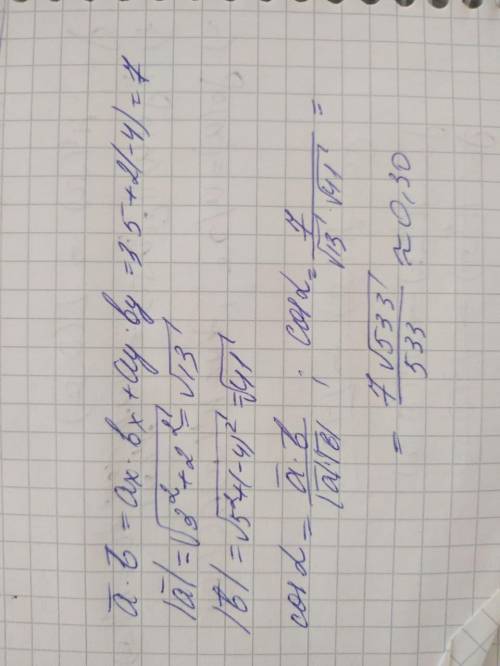 a̅ · b̅ = ax · bx + ay · by = 3·5 + 2(-4) = 7
|a̅| = √(3² + 2²) = √13
|b̅| = √(5² + (-4)²) = √41
cos α = (a̅ · b̅)/(|a̅|·|b̅|) ; cos α = 7/(√13 · √41) =
= 7√533/533 ≈ 0,30